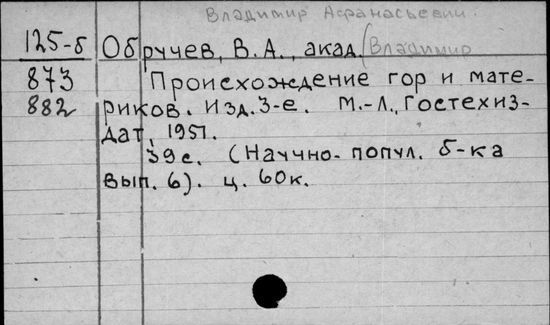 Владимир Афанасьевич.
125-б Обручев, В.А., акад. (Владимир
873 Происхождение гор и мате-
882 риков. Изд. 3-е. М.-Л., Гостехиз-
дат, 1951.
39 с. (Научно-попул. б-ка
вып. 6). ц. 60к.